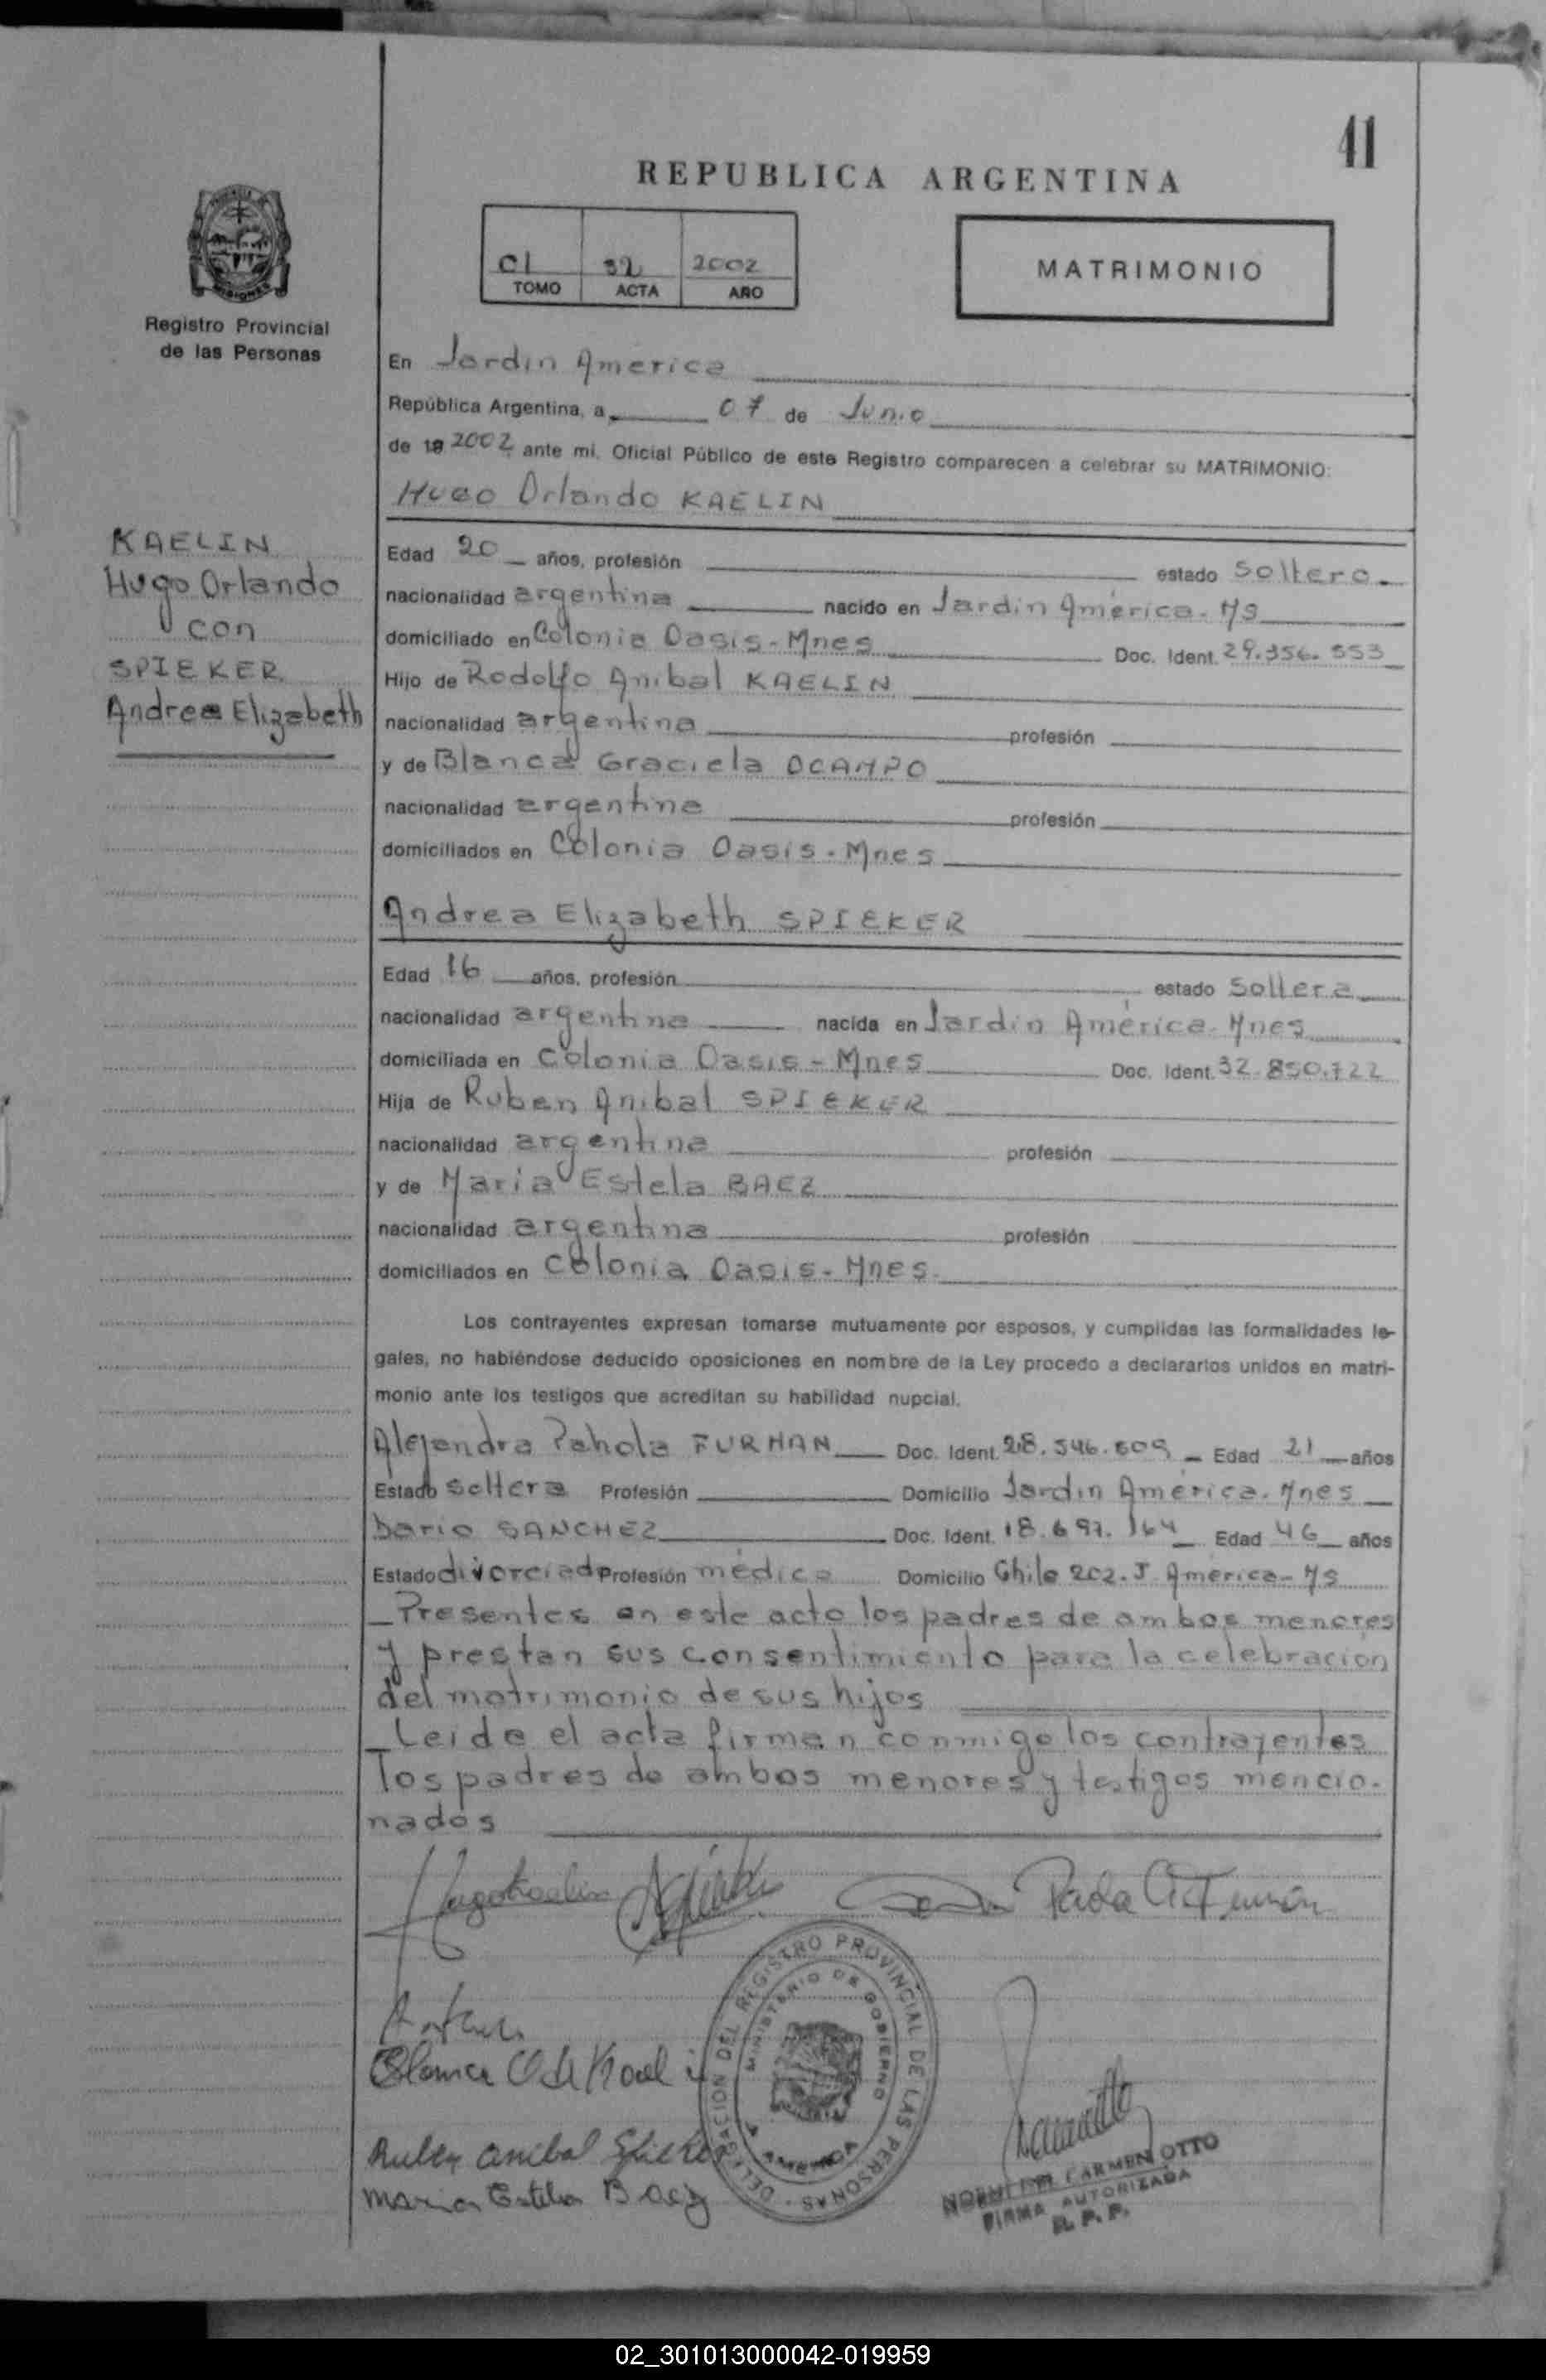 41
REPUBLICA ARGENTINA
MATRIMONIO
01 32 2002
TOMO ACTA AÑO
Registro Provincial
de las Personas
KAELIN
Hugo Orlando
con
SPIEKER
Andrea Elizabeth
En Jardin America
República Argentina, a 07 de Junio
de 19 2002 ante mi, Oficial Público de este Registro comparecen a celebrar su MATRIMONIO:
Hugo Orlando KAELIN
Edad 20 años, profesión estado soltero
nacionalidad argentina nacido en Jardin América - Ms
domiciliado en Colonia Oasis - Mnes Doc. Ident. 29.356.553
Hijo de Rodolfo Anibal KAELIN
nacionalidad argentina profesión
y de Blanca Graciela OCAMPO
nacionalidad argentina profesión
domiciliados en Colonia Oasis - Mnes
Andrea Elizabeth SPIEKER
Edad 16 años, profesión estado soltera
nacionalidad argentina nacida en Jardin América - Mnes
domiciliada en Colonia Oasis - Mnes Doc. Ident. 32.850.722
Hija de Ruben Anibal SPIEKER
nacionalidad argentina profesión
y de Maria Estela BAEZ
nacionalidad argentina profesión
domiciliados en Colonia Oasis - Mnes.
Los contrayentes expresan tomarse mutuamente por esposos, y cumplidas las formalidades le-
gales, no habiéndose deducido oposiciones en nombre de la Ley procedo a declararlos unidos en matri-
monio ante los testigos que acreditan su habilidad nupcial.
Alejandra Pahola FURMAN Doc. Ident. 28.546.809 Edad 21 años
Estado soltera Profesión Domicilio Jardin América - Mnes
Dario SANCHEZ Doc. Ident. 18.697.164 Edad 46 años
Estado divorciado Profesión medico Domicilio Chile 202. J. América - Ms
Presentes en este acto los padres de ambos menores
y prestan sus consentimiento para la celebracion
del matrimonio de sus hijos
Leida el acta firman conmigo los contrayentes
los padres de ambos menores y testigos mencio-
nados
Ruben Anibal Spieker
Maria Estela Baez
DELEGACION DEL REGISTRO PROVINCIAL DE LAS PERSONAS
MINISTERIO DE GOBIERNO
AMERICA
DEL CARMEN OTTO
FIRMA AUTORIZADA
R. P. P.
02_301013000042-019959